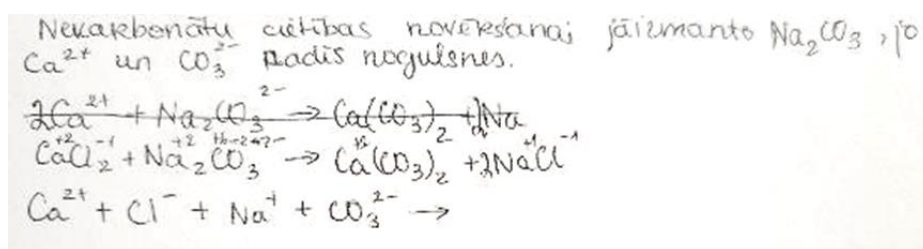 Nekarbonātu cietības novēršanai jāizmanto Na₂CO₃, jo
Ca²⁺ un CO₃²⁻ radīs nogulsnes.
2Ca²⁺ + Na₂CO₃²⁻ → Ca(CO₃)₂ + 2Na
CaCl₂ + Na₂CO₃ → Ca(CO₃)₂ + 2NaCl
Ca²⁺ + Cl⁻ + Na⁺ + CO₃²⁻ →